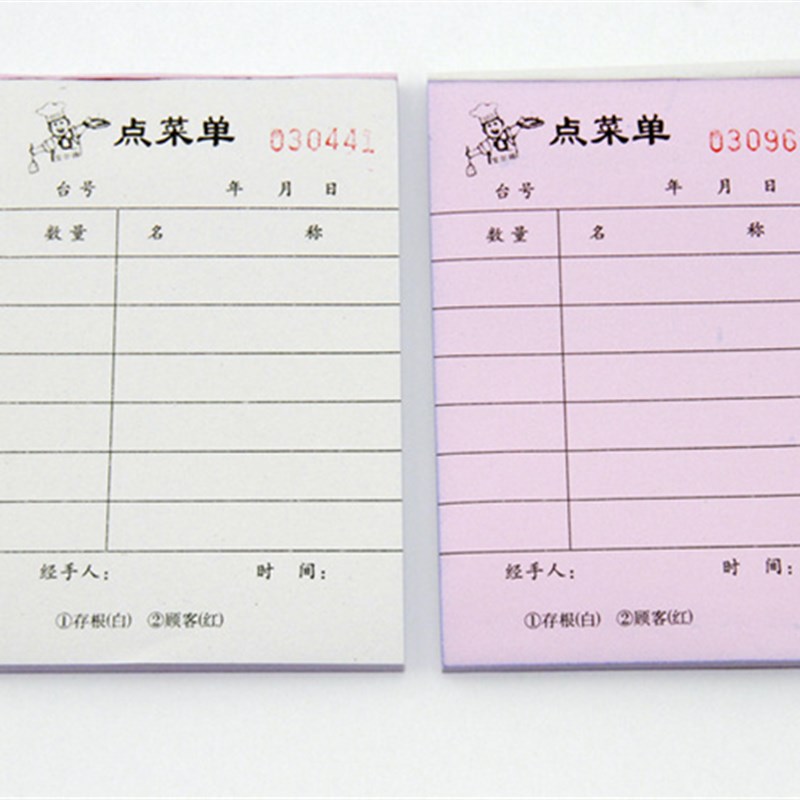 点菜单 030441
台号 年 月 日
数量 名 称
经手人： 时 间：
①存根(白) ②顾客(红)
点菜单 03096
台号 年 月 日
数量 名 称
经手人： 时 间：
①存根(白) ②顾客(红)